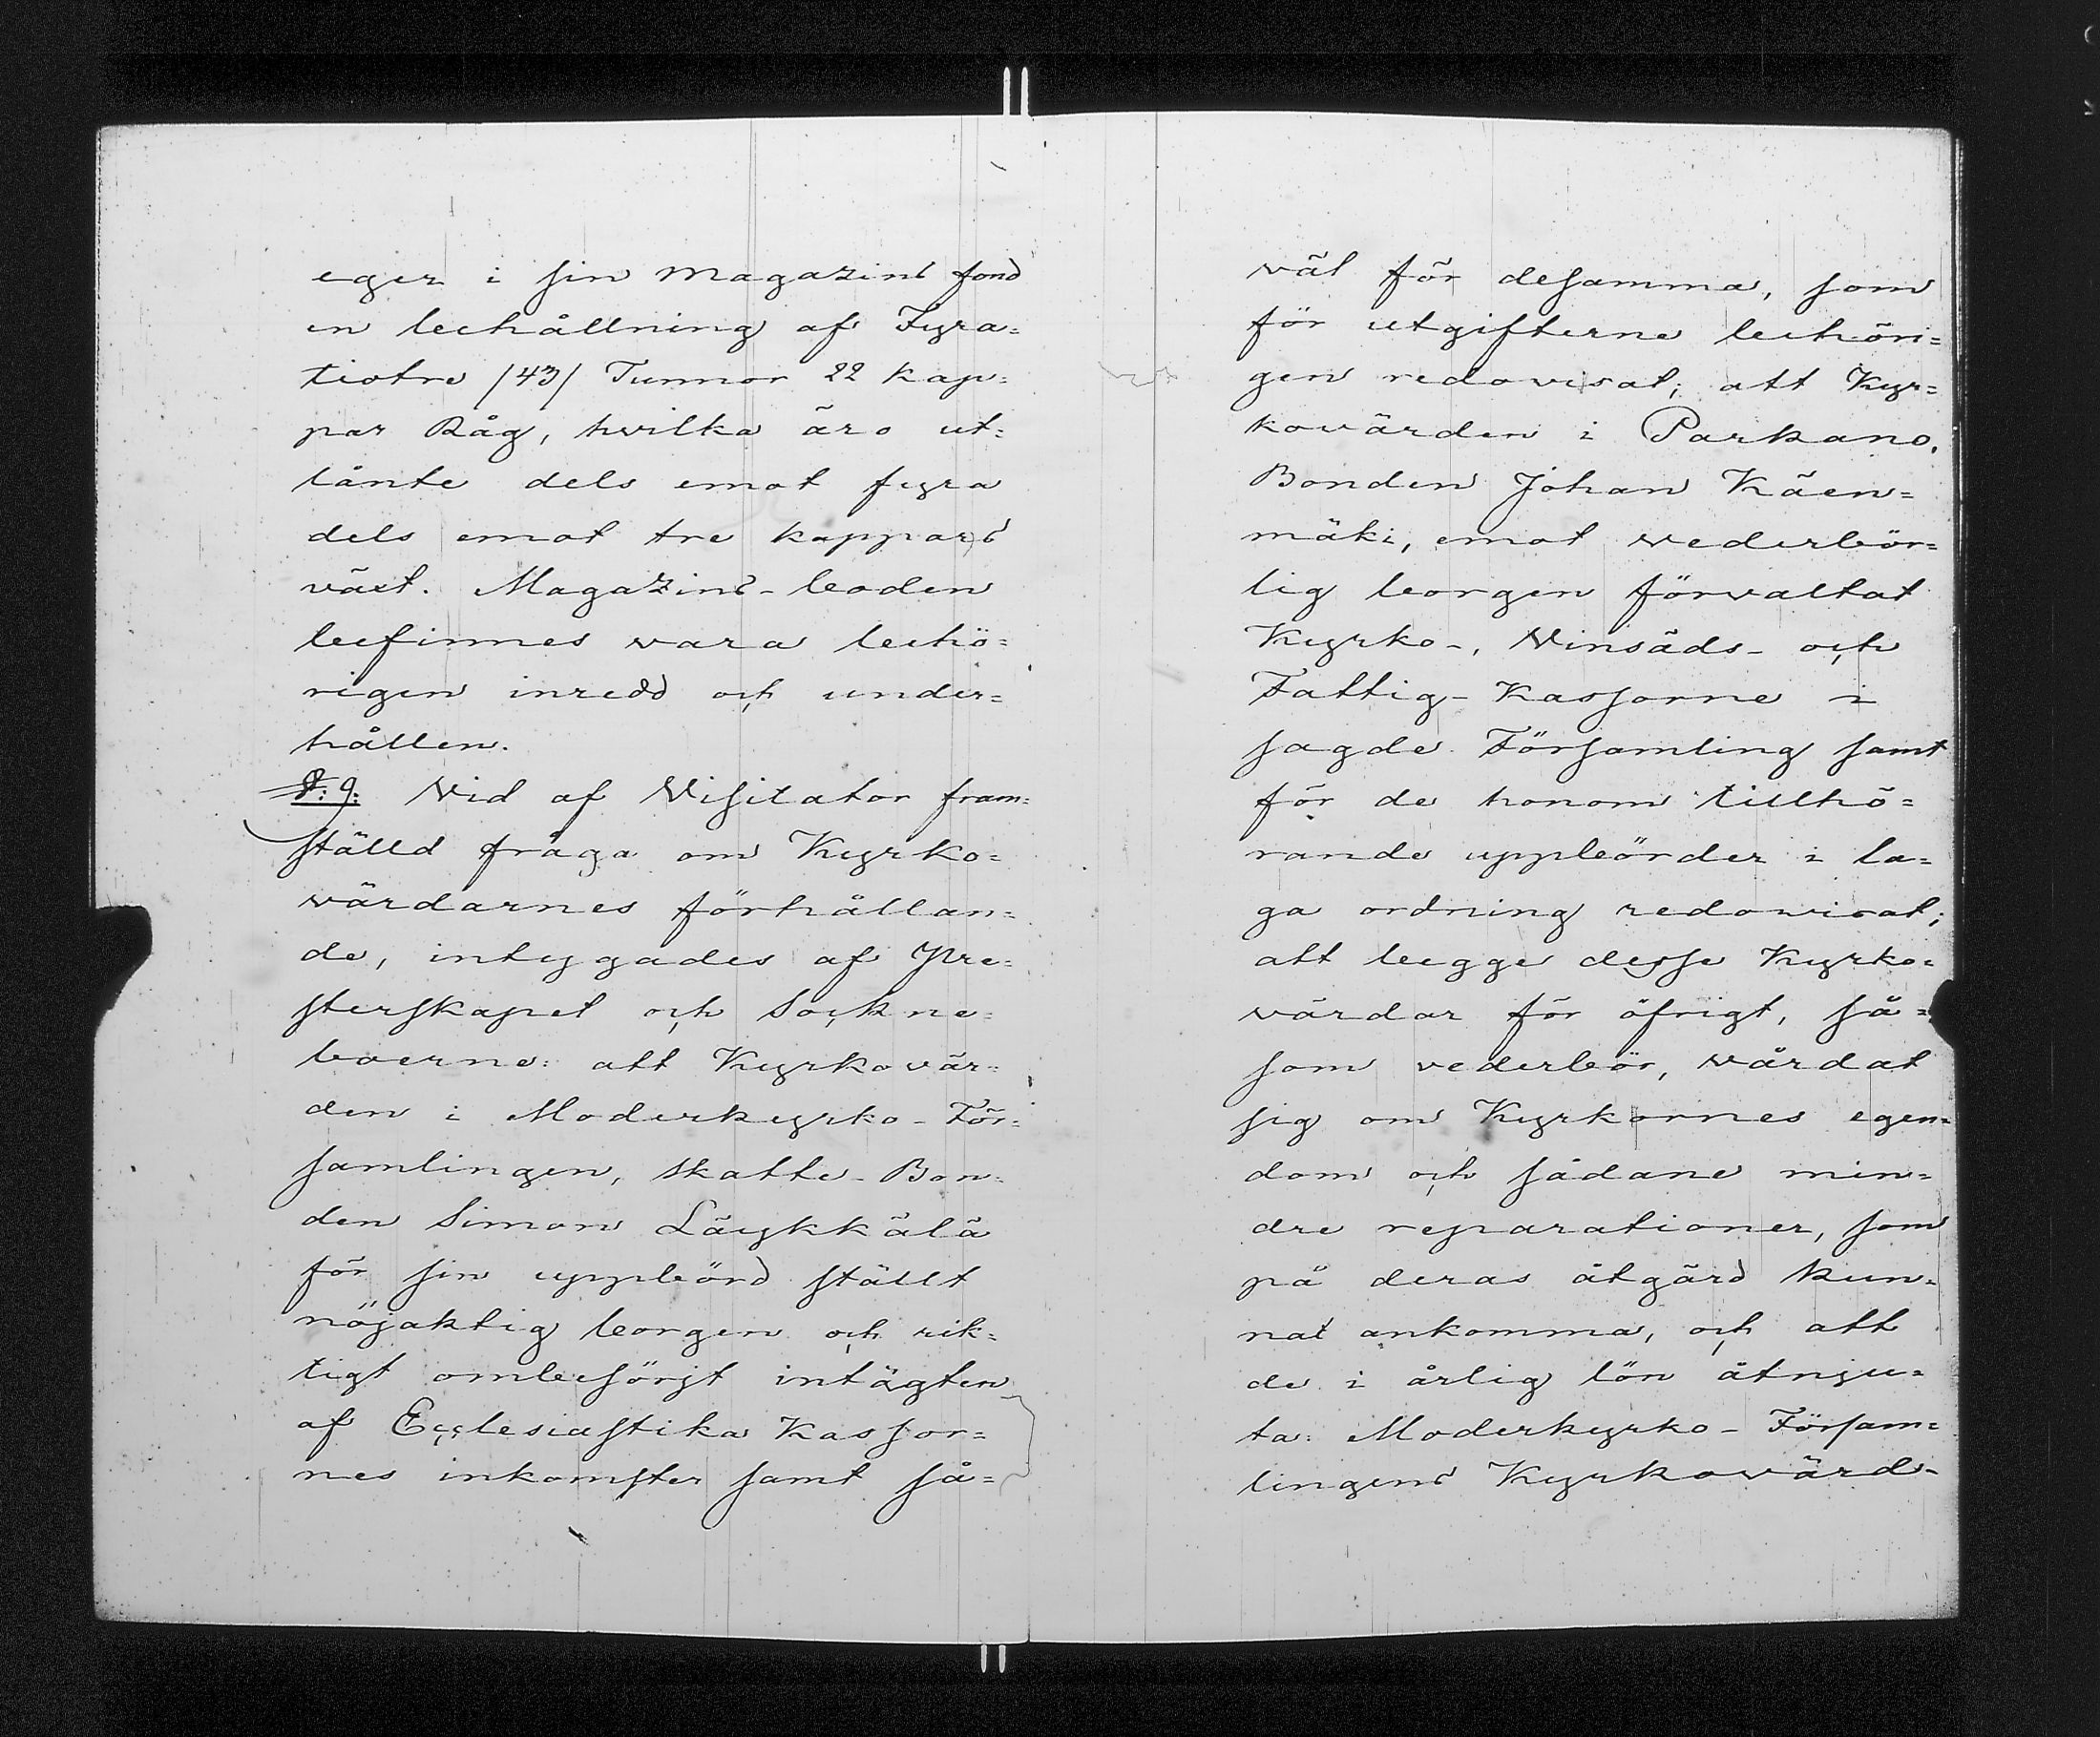 eger i sin Magazins fond
en behållning af Fyra=
tiotre /43/ Tunnor 22 kap=
par Råg, hvilka äro ut=
lånte dels emot fyra
dels emot tre kappars
växt. Magazins-boden
befinnes wara behö=
rigen inredd och under=
hållen.
§: 9: Vid af Visitator fram=
ställd fråga om Kyrko=
wärdarnes förhållan=
de, intygades af Pre=
sterskapet och Sockne=
boerne: att Kyrkovär=
den i Moderkyrko-För=
samlingen, Skatte-Bon=
den Simon Läykkälä
för sin uppbörd ställt
nöjaktig borgen och rik=
tigt ombesörjt intägten
af Ecclesiastika Kassor=
nes inkomster samt så=
väl för desamma, som
för utgifterne behöri=
gen redovisat; att Kyr=
kovärden i Parkano,
Bonden Johan Käen=
mäki, emot wederbör=
lig borgen förvaltat
Kyrko-, Vinsäds- och
Fattig-Kassorne i
sagde Församling samt
för de honom tillhö=
rande uppbörder i la=
ga ordning redowisat;
att begge desse Kyrko=
värdar för öfrigt, så=
som vederbör, wårdat
sig om Kyrkornes egen=
dom och sådane min=
dre reparationer, som
på deras åtgärd kun=
nat ankomma, och att
de i årlig lön åtnju=
ta: Moderkyrko-Försam=
lingens Kyrkowärd-